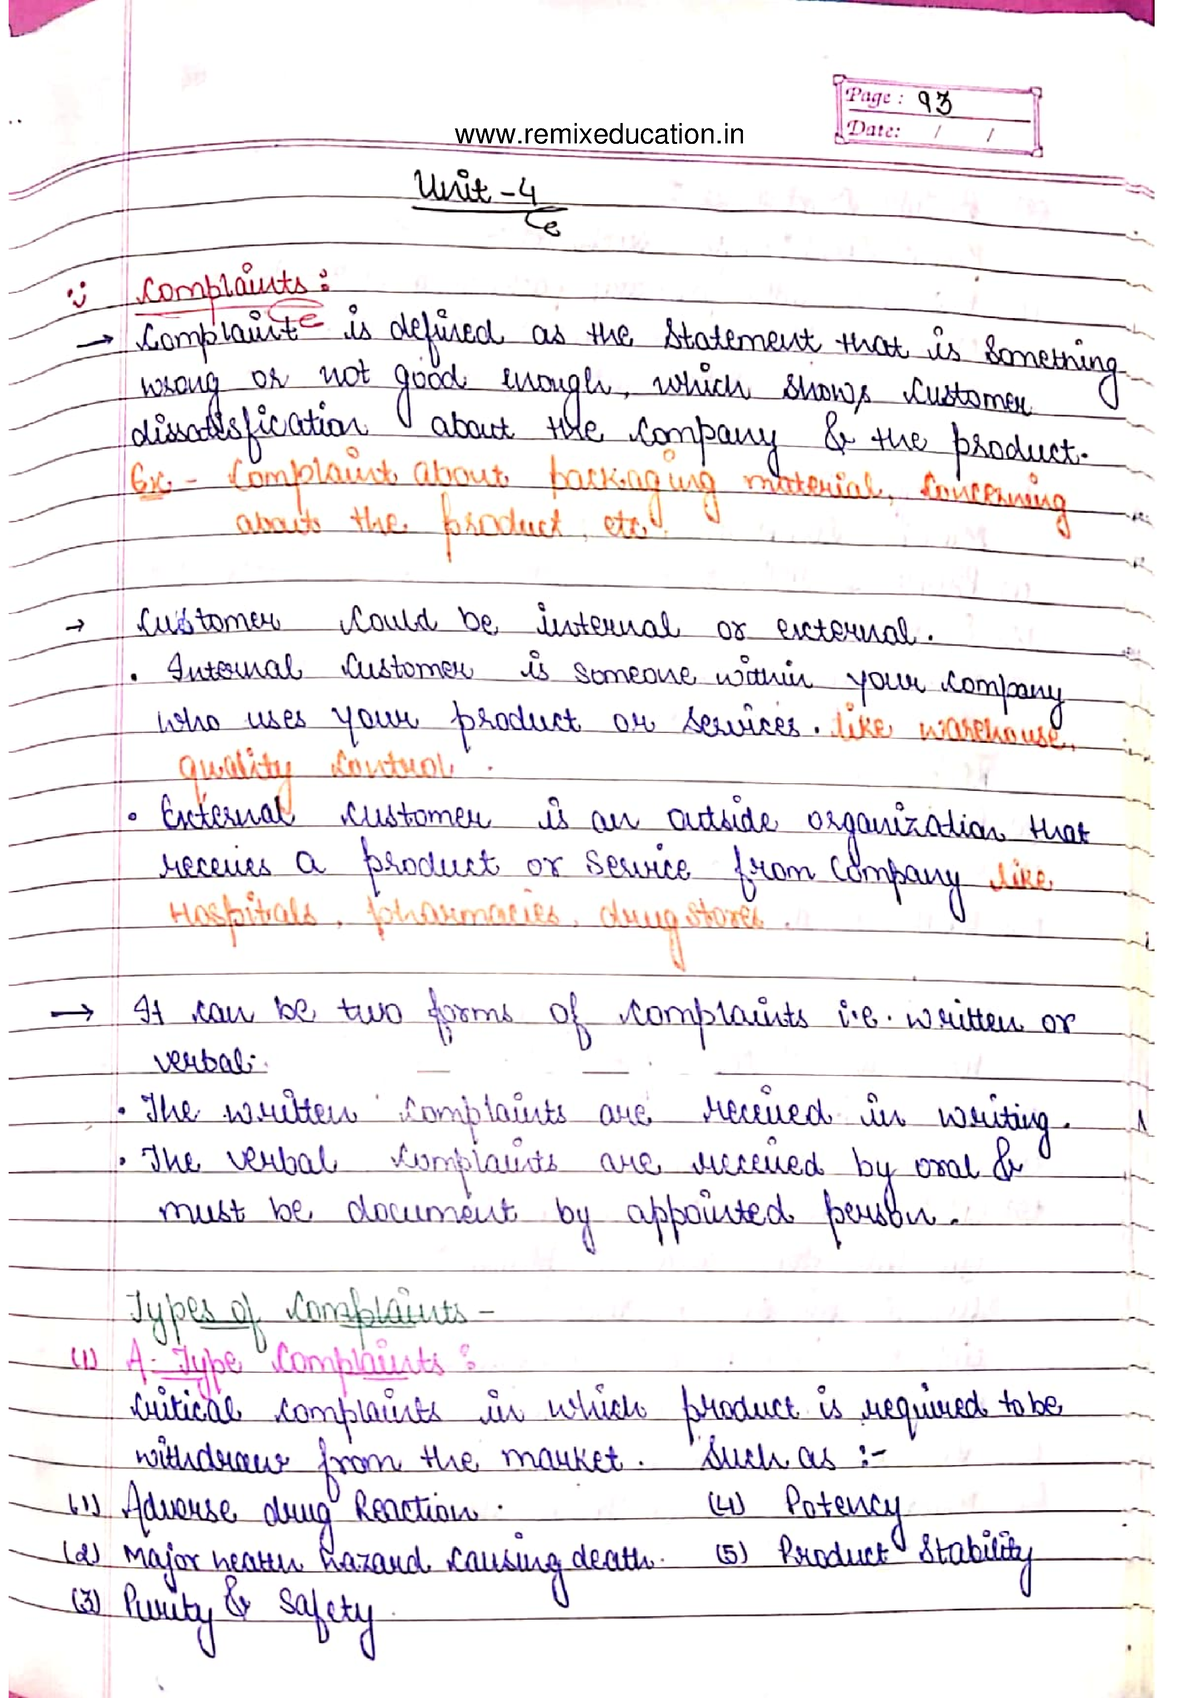 Page : 93
www.remixeducation.in
Date: / /
Unit - 4
Complaints :
→ Complaint is defined as the statement that is something
wrong or not good enough, which shows customer
dissatisfication about the company & the product.
Ex - Complaint about packaging material, concerning
about the product, etc.
→ Customer could be internal or external.
• Internal customer is someone within your company
who uses your product or services. like warehouse,
quality control.
• External customer is an outside organization that
receives a product or service from company like
Hospitals, pharmacies, drug stores.
→ It can be two forms of complaints i.e. written or
verbal:
• The written complaints are received in writing.
• The verbal complaints are received by oral &
must be document by appointed person.
Types of complaints -
(1) A-Type Complaints :
Critical complaints in which product is required to be
withdraw from the market. Such as :-
(1) Adverse drug Reaction. (4) Potency
(2) Major health hazard causing death. (5) Product stability
(3) Purity & Safety.